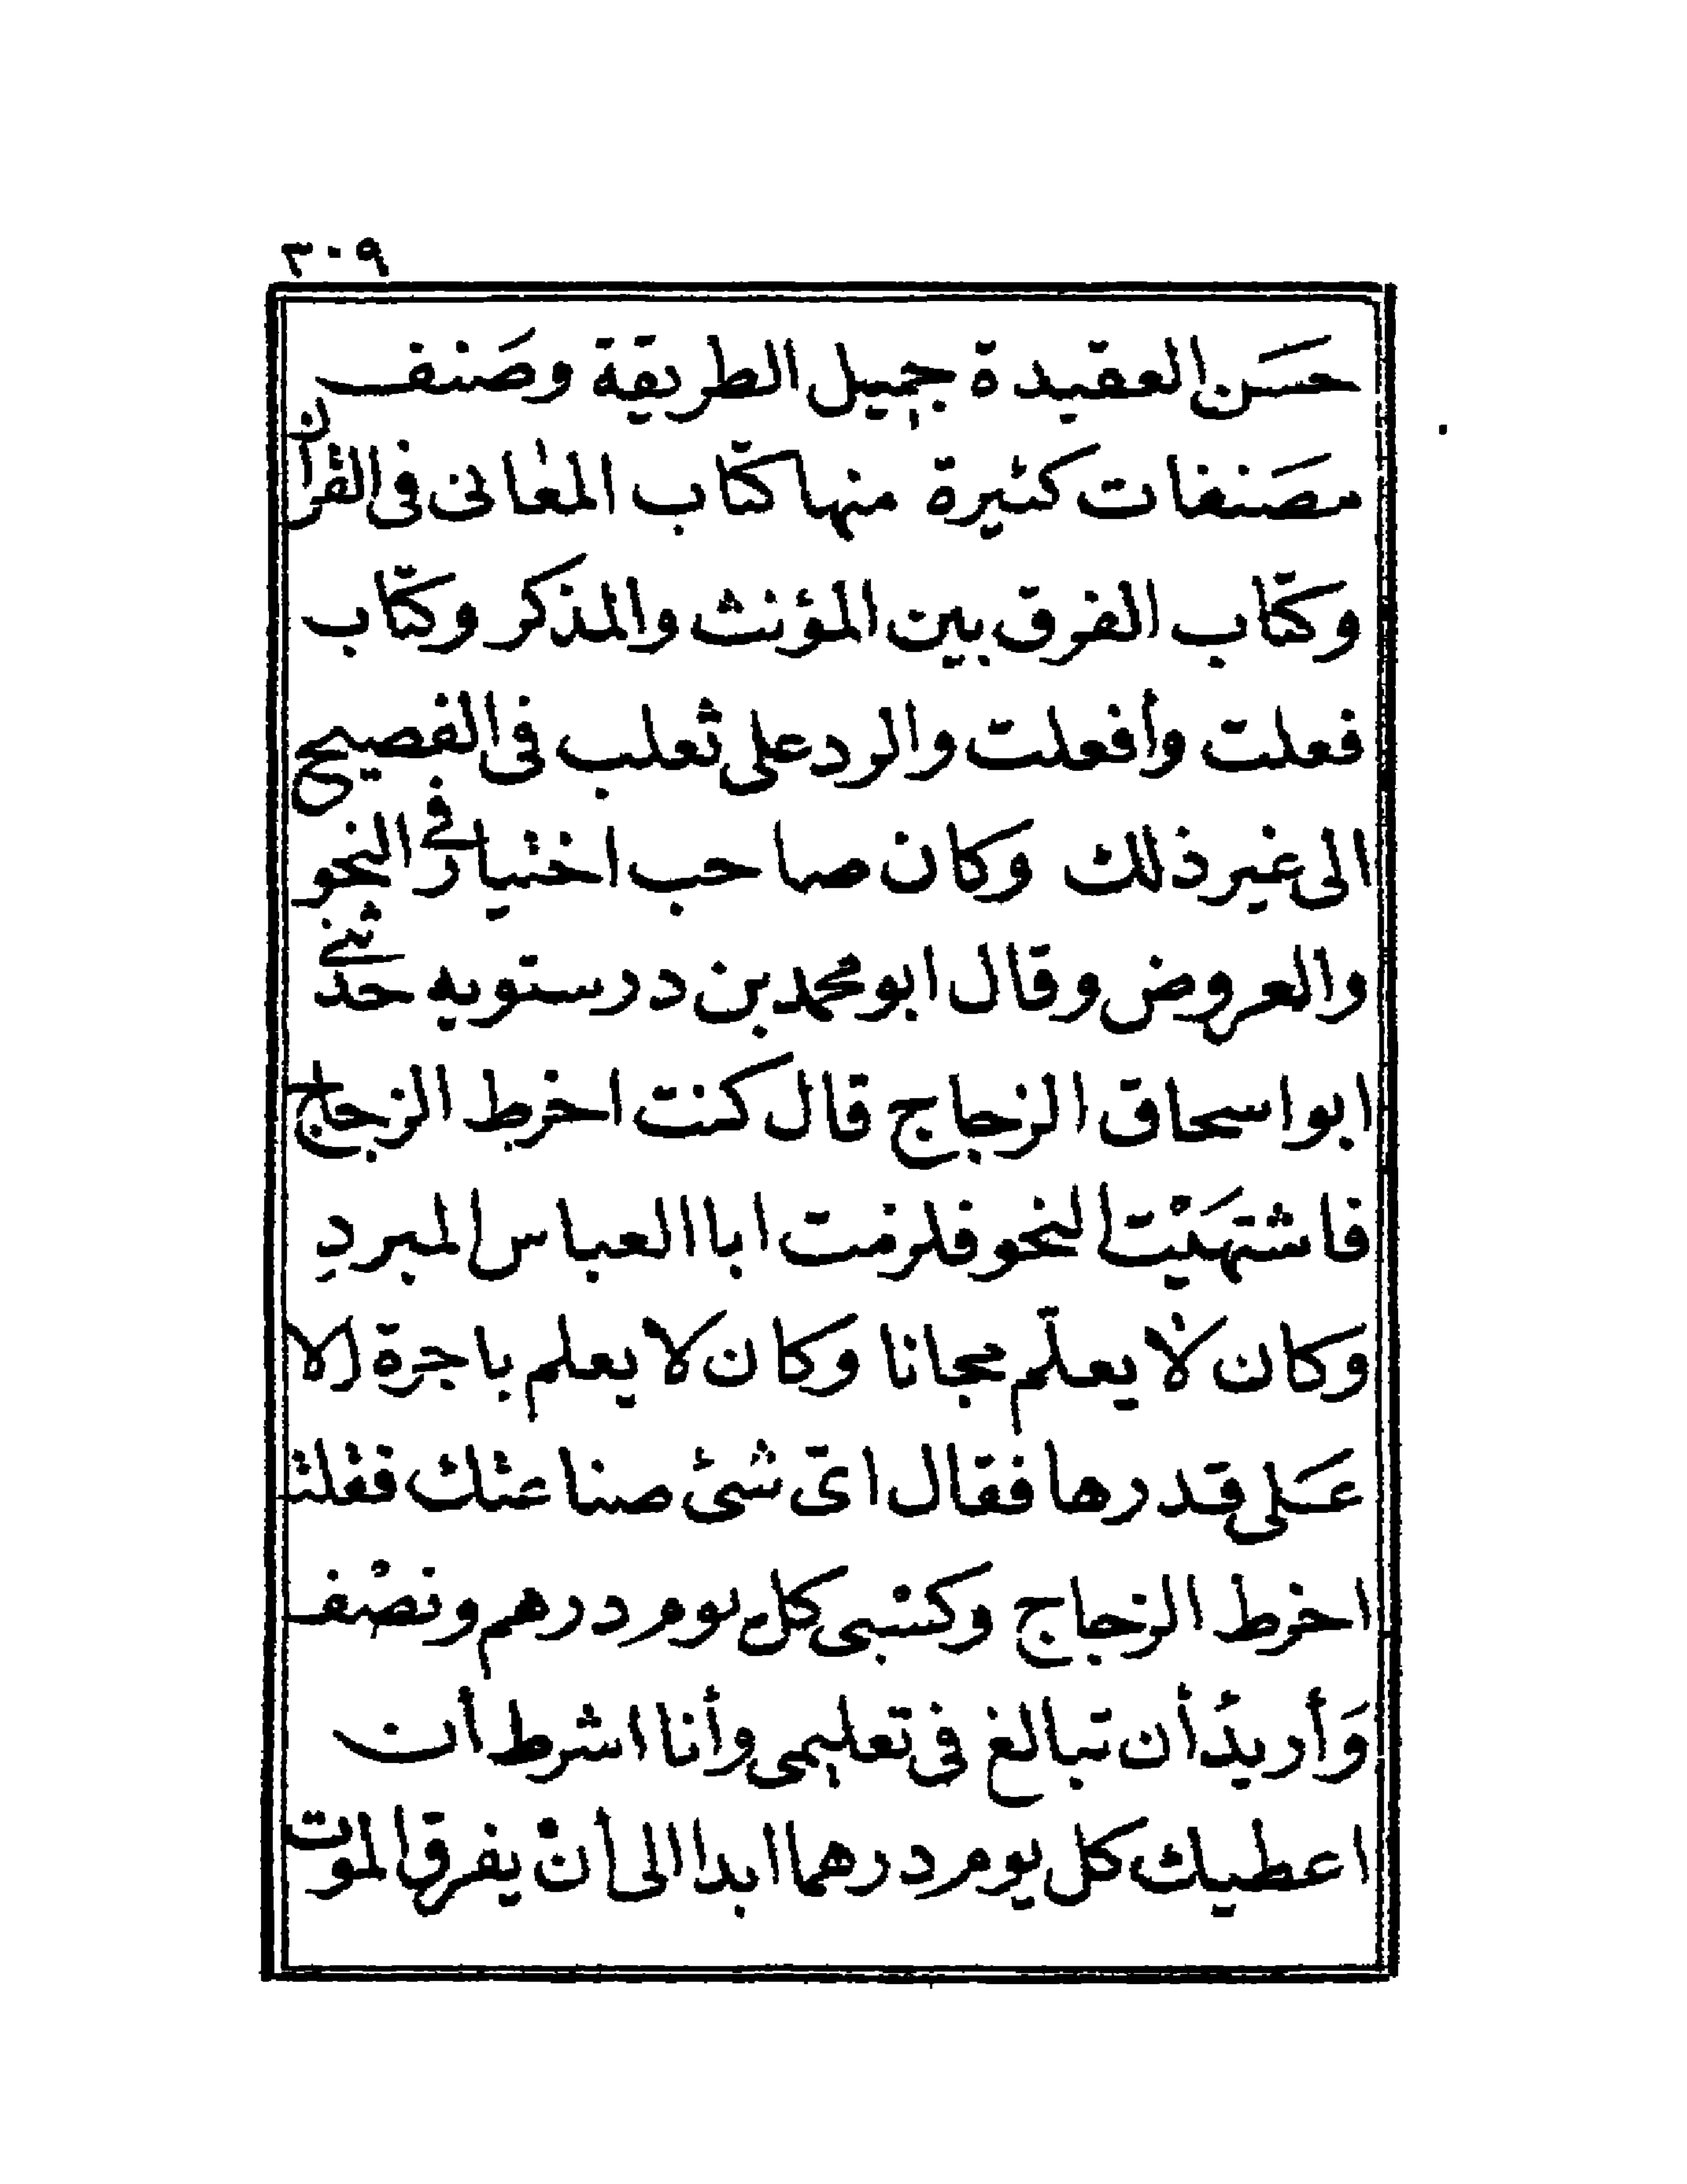 ٣٠٩
حَسَن العقيدة جميل الطريقة وصَنف
مصَنفات كثيرة منها كتاب المعانى فى القرآن
وكتاب الفرق بين المؤنث والمذكر وكتاب
فعلت وأفعلت والرد على ثعلب فى الفصيح
الى غير ذلك وكان صاحب اختيار فى النحو
والعروض وقال ابو محمد بن درستويه حدثنى
ابو اسحاق الزجاج قال كنت اخرط الزجاج
فاشتهَيْت النحو فلزمت ابا العباس المبردِ
وكان لا يعلّم مجانا وكان لا يعلم باجرة الا
عَلى قدرها فقال اىّ شئ صناعتك فقلت
اخرط الزجاج وكسبى كل يوم درهم ونصْف
وَأريدُ أن تبالغ فى تعليمى وأنا اشرط أن
اعطيك كل يوم درهما ابدا الى أنْ يفرق الموت